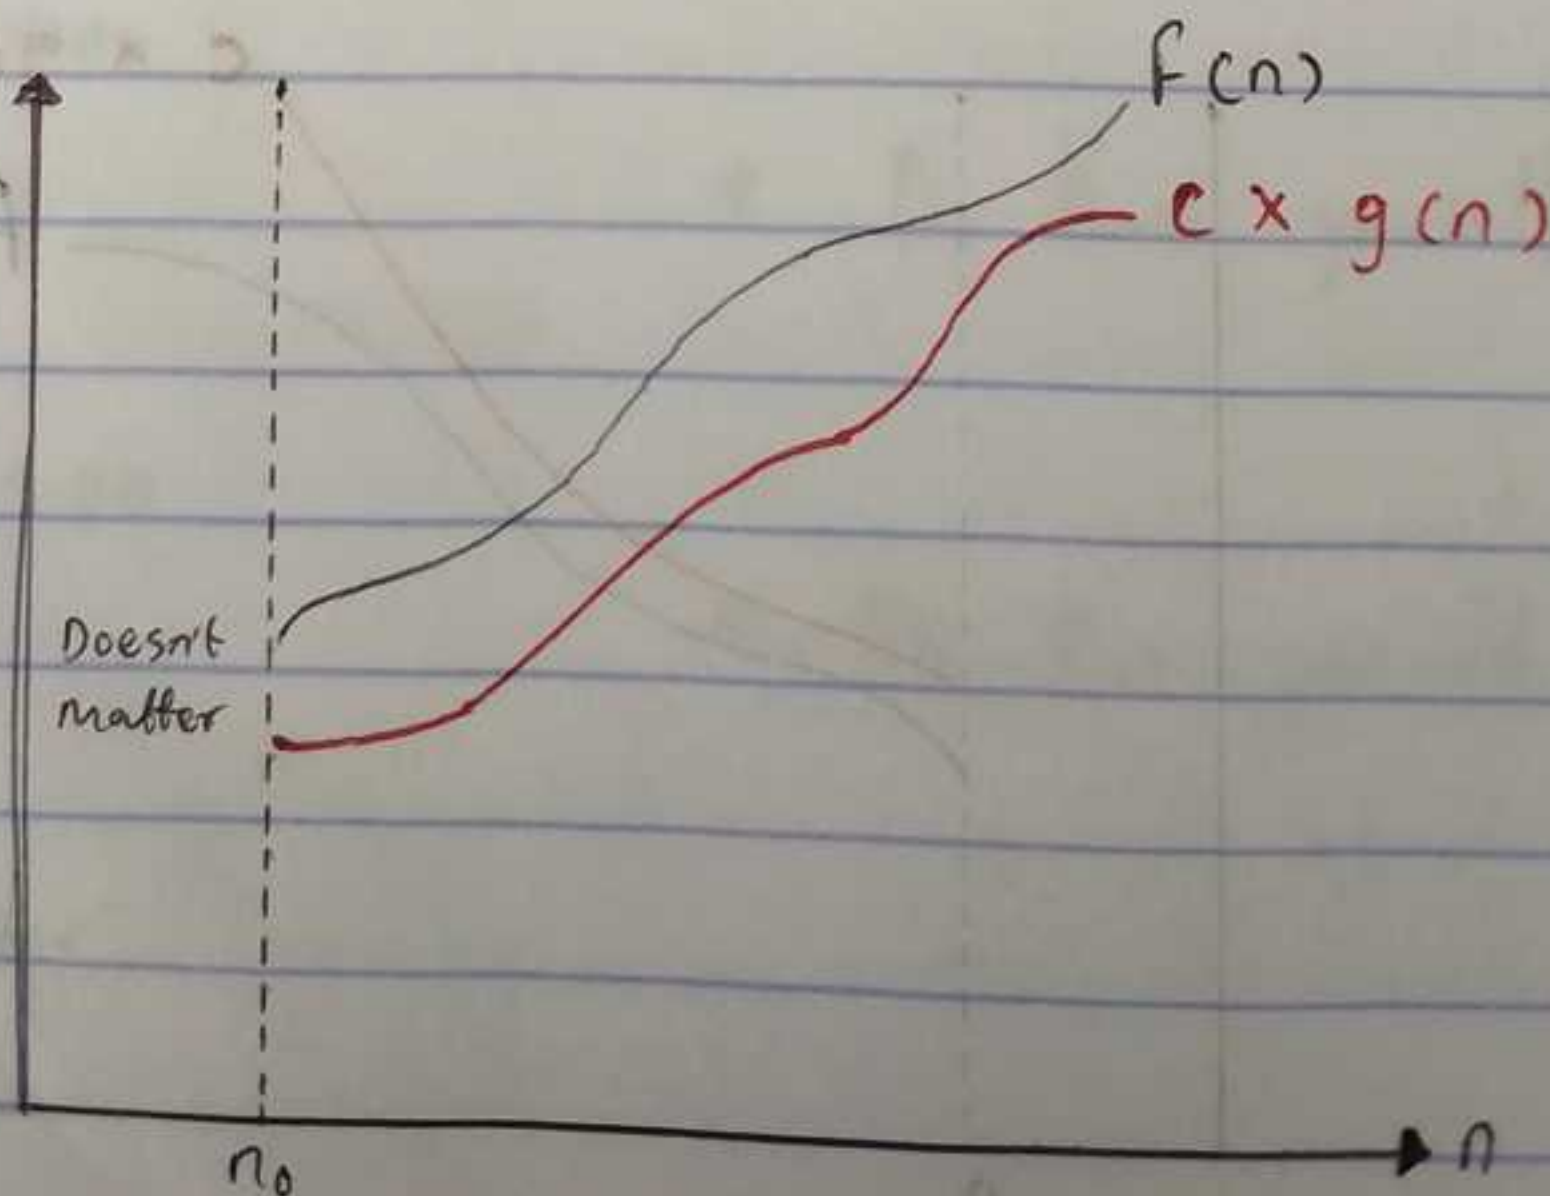 f(n)
c x g(n)
Doesn't
matter
n₀
n